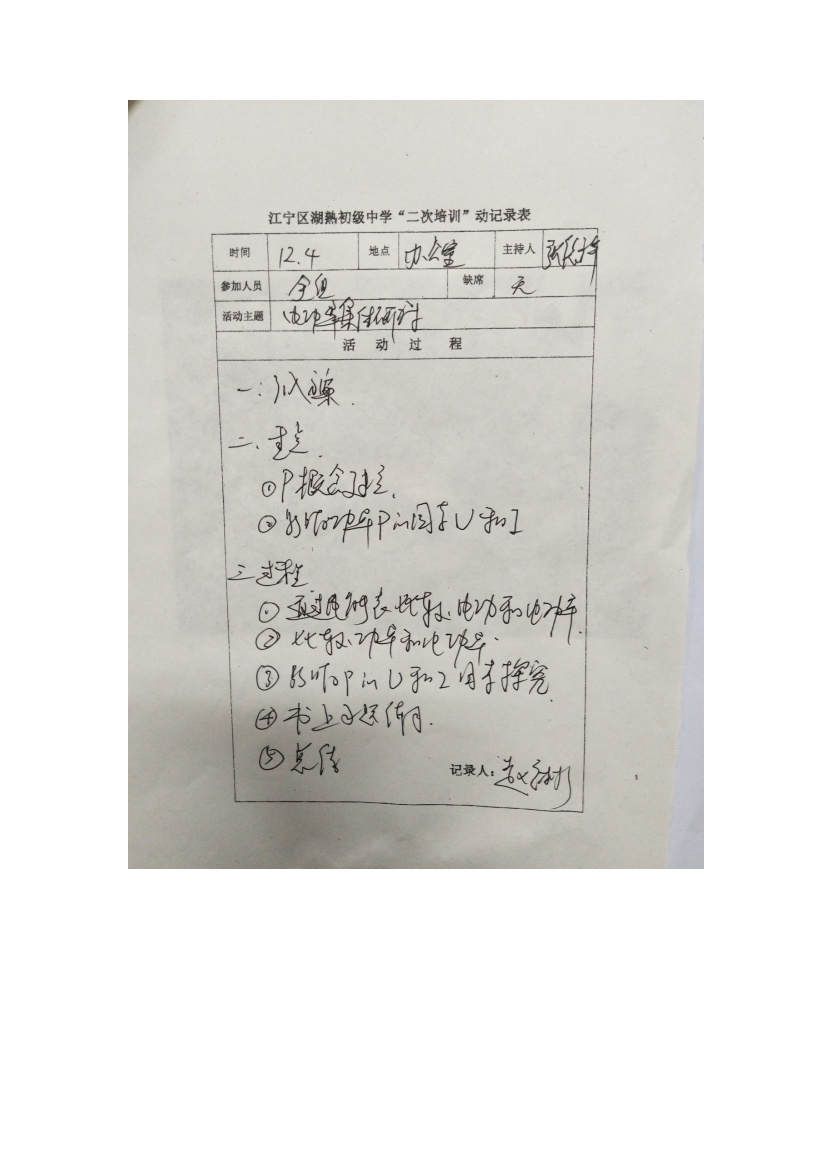 江宁区湖熟初级中学“二次培训”动记录表
时间 12.4 地点 办公室 主持人
参加人员 全组 缺席 无
活动主题 电功率集体研讨
活 动 过 程
一:
二、重点.
①P概念建立.
②影响功率P的因素U和I
三 过程
①通过电能表比较、电功和电功率.
②比较功率和电功率.
③影响P的U和I因素探究
④书上习题
⑤总结
记录人:赵